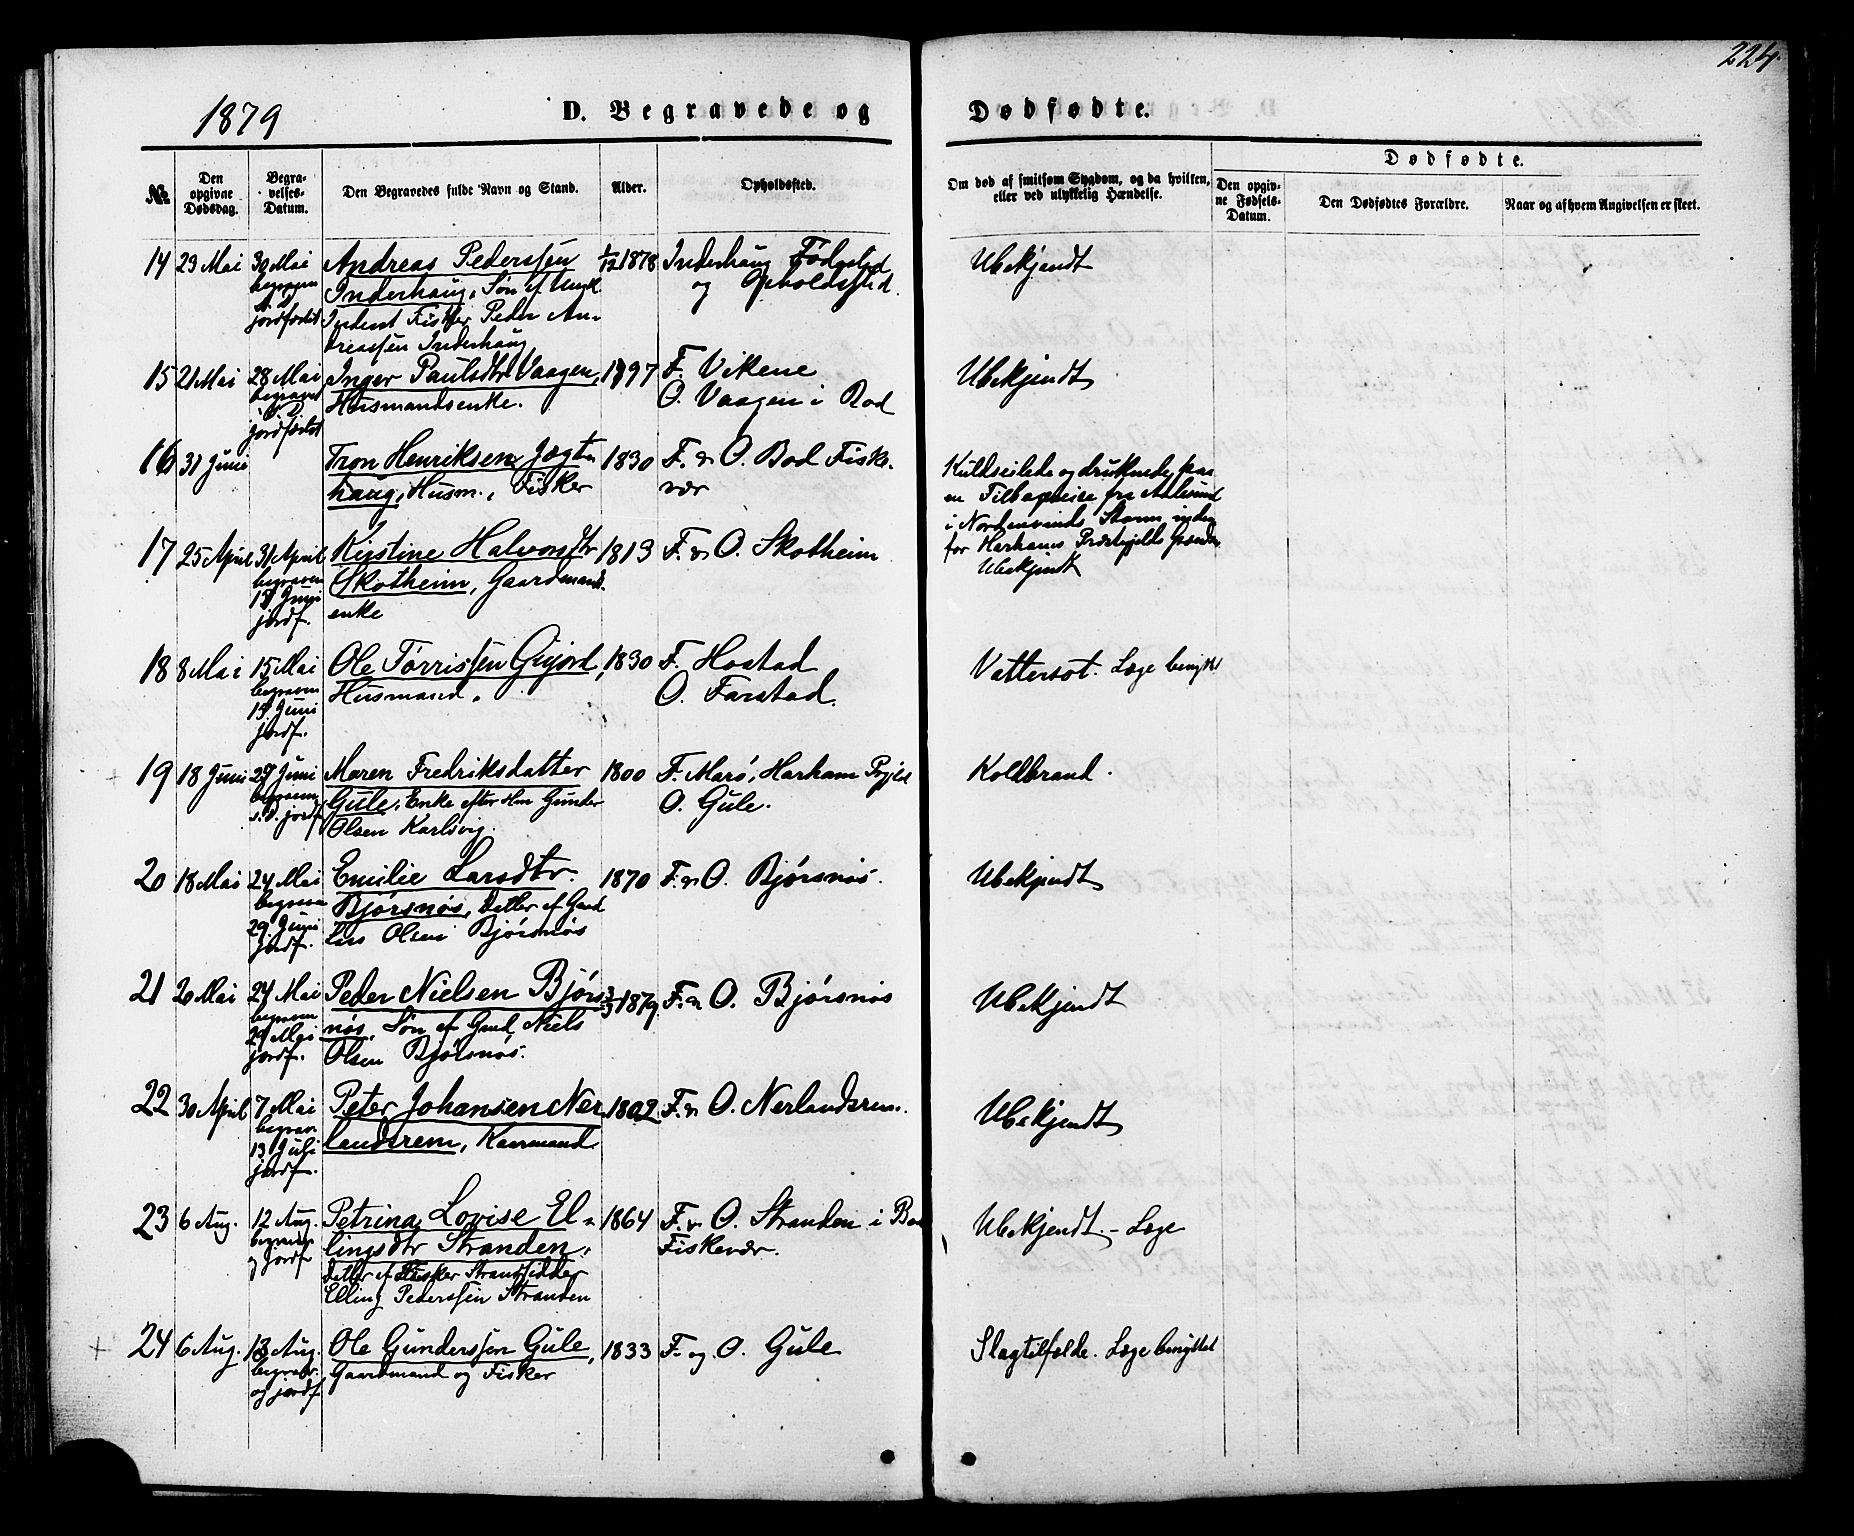 224.
1879
D. Begravede og Dødfødte.
№
Den opgivne Dødsdag.
Begravelses-Datum.
Den Begravedes fulde Navn og Stand.
Alder.
Opholdssted.
Om død af smitsom Sygdom, og da hvilken,
eller ved ulykkelig Hændelse.
Dødfødte.
Den opgivne Fødsels-Datum.
Den Dødfødtes Forældre.
Naar og af hvem Angivelsen er skeet.
14 23 Mai 30 Mai Andreas Pederssen 1/12 1878 Inderhaug Fødested Ubekjendt
Inderhaug, Søn af og Opholdssted.
jordfæstet Fisker Peder An-
dreassen Inderhaug
15 21 Mai 28 Mai Inger Paulsdtr Vaagen, 1797 F. Vikene Ubekjendt
begravet Husmandsenke. O. Vaagen i Bod
jordfæstet
16 31 Juni Tron Henriksen Jægt- 1830 F. & O. Bod Fiske- Kuldseilede og druknede paa
haug, Husm., Fisker vær en Tilbagereise fra Aalesund
i Nordenvinds Storm inden
for Harhams Præstegjelds
17 25 April 31 April Kirstine Halvorsdtr 1813 F. & O. Skotheim Ubekjendt
begraven Skotheim, Gaardmands-
15 Juni enke
jordf.
18 8 Mai 15 Mai Ole Tørrissen Gigjord, 1830 F. Hostad Vattersot. Læge benyttet
begraven Husmand. O. Farstad.
15 Juni
jordf.
19 18 Juni 27 Juni Maren Fredriksdatter 1800 F. Marø, Harham Pgjeld Koldbrand.
begraven Gule, Enke efter Hm Gunder O. Gule.
s. D. jordf Olsen Karlsvig.
20 18 Mai 24 Mai Emilie Larsdtr. 1870 F. & O. Bjørsnøs. Ubekjendt
begraven Bjørsnøs, Datter af Gmd
29 Juni Lars Olsen Bjørsnøs
jordf.
21 20 Mai 24 Mai Peder Nielsen Bjørs- 3/3 1879 F. & O. Bjørsnøs Ubekjendt
begraven nøs, Søn af Gmd Niels
29 Mai Olsen Bjørsnøs.
jordf.
22 30 April 7 Mai Peter Johansen Ner- 1802 F. & O. Nerlandsrem. Ubekjendt
begrav. landsrem, Kaarmand
13 Juli
jordf.
23 6 Aug. 12 Aug. Petrina Lovise El- 1864 F. & O. Stranden i Bod Ubekjendt - Læge
begravet lingsdtr Stranden, Fiskevær.
og jordf Datter af Fisker Strandsidder
Elling Pederssen Stranden
24 6 Aug. 13 Aug. Ole Gunderssen Gule, 1833 F. og O. Gule Slagtilfælde. Læge benyttet
begrav. Gaardmand og Fisker
og jordf